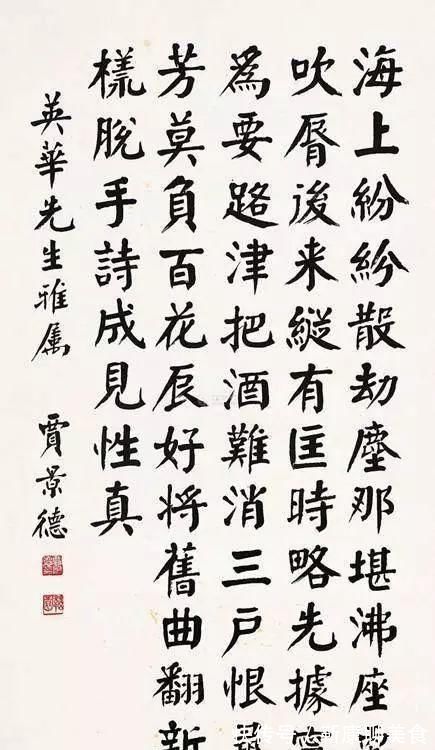 海上紛紛散劫塵那堪沸座
吹脣後来縱有匡時略先據
為要路津把酒難消三戶恨
芳莫負百花辰好将舊曲翻新
樣脫手詩成見性真
英華先生雅属 賈景德